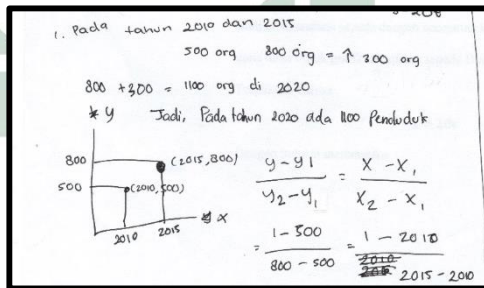 1. Pada tahun 2010 dan 2015
500 org 800 org = ↑ 300 org
800 + 300 = 1100 org di 2020
Y Jadi, Pada tahun 2020 ada 1100 Penduduk
800 (2015, 800)
500 (2010, 500)
2010 2015 x
y - y1 / y2 - y1 = x - x1 / x2 - x1
= 1 - 500 / 800 - 500 = 1 - 2010 / 2015 - 2010